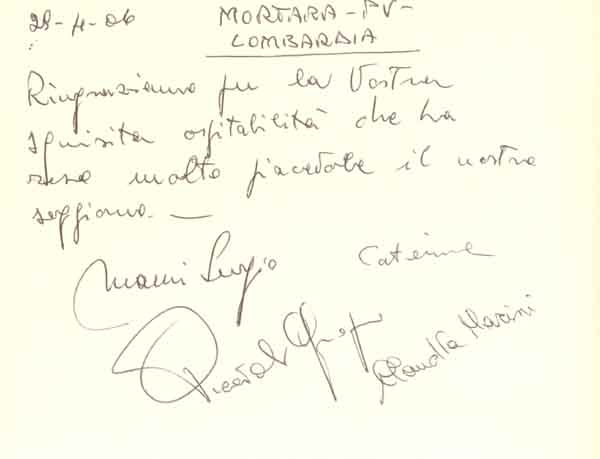 28-4-06
MORTARA - PV -
LOMBARDIA
Ringraziamo per la Vostra
squisita ospitalità che ha
reso molto piacevole il nostro
soggiorno. —
Caterina
Claudia Marini